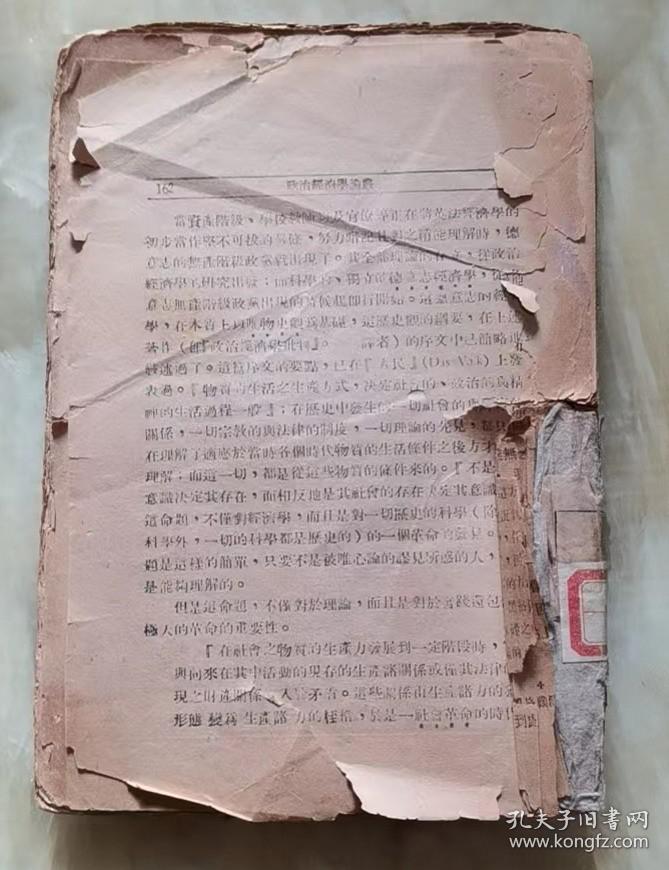 162
政治經濟學論叢
當資產階級、學校教師以及官僚等正在將英法經濟學的
初步當作堅不可拔的，努力暗記且對之稍能理解時，德
意志的無產階級政黨就出現了。其全部理論的存立，從政治
經濟學的研究出發；而科學的、獨立的德意志經濟學，從
意志無產階級政黨出現的時候起即行開始。這德意志的經
學，在本質上以唯物史觀爲基礎，這歷史觀的綱要，在上述
著作（卽『政治經濟學批判』。譯者）的序文中已簡略
敍述過了。這篇序文的要點，已在『人民』(Das Volk)上發
表過。『物質的生活之生產方式，決定社會的、政治的與精
神的生活過程一般』；在歷史中發生的一切社會的與
關係，一切宗教的與法律的制度，一切理論的見，都只
在理解了適應於當時各個時代物質的生活條件之後方才
理解；而這一切，都是從這些物質的條件來的。『不是
意識決定其存在，而相反地是其社會的存在決定其意識
這命題，不僅對經濟學，而且是對一切歷史的科學（除
科學外，一切的科學都是歷史的）的一個革命的發見。
題是這樣的簡單，只要不是被唯心論的謬見所惑的人，
是能夠理解的。
但是這命題，不僅對於理論，而且是對於實踐還包
極大的革命的重要性。
『在社會之物質的生產力發展到一定階段時，
與向來在其中活動的現存的生產諸關係或僅其法律
現之財產關係陷入於矛盾。這些關係由生產諸力的發
形態變爲生產諸力的桎梏，於是一社會革命的時代
到
孔夫子旧书网
www.kongfz.com